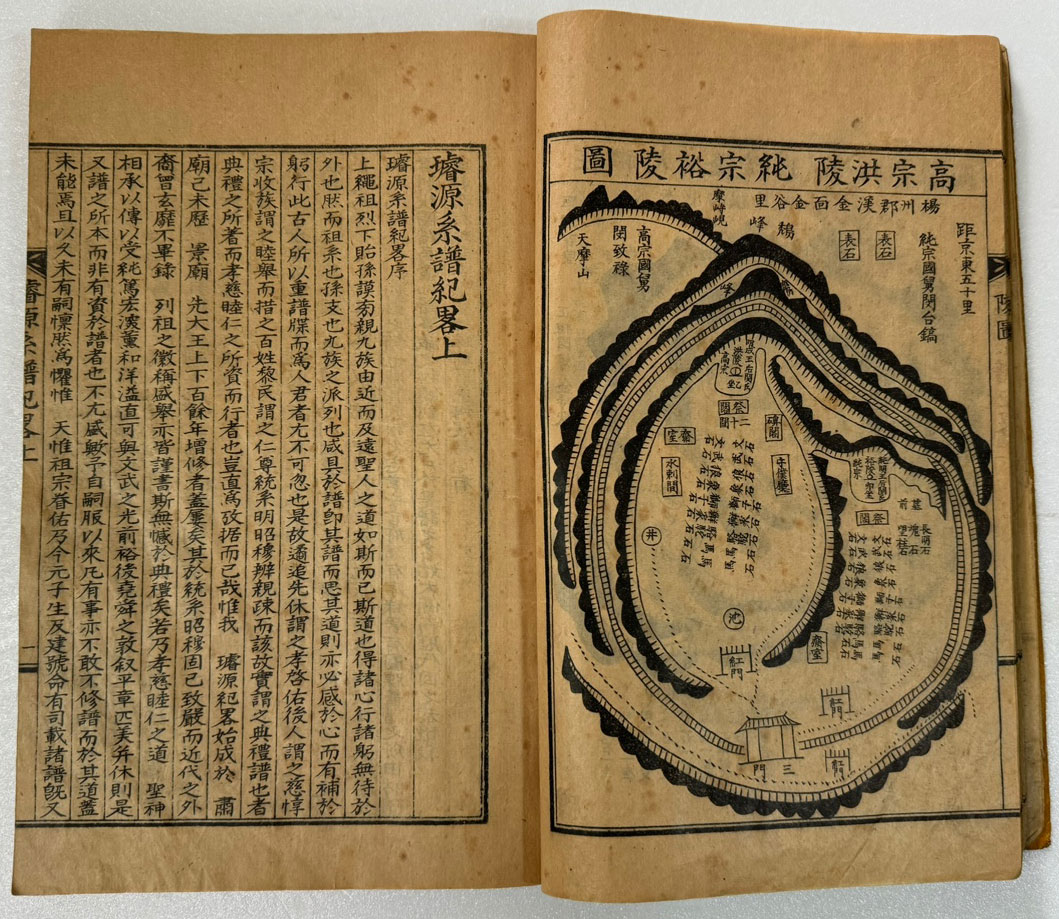 高宗洪陵 純宗裕陵圖
楊州郡渼金面金谷里
距京東五十里
純宗國舅閔台鎬
表石
表石
鷄峰
摩峙峴
高宗國舅
閔致祿
天摩山
洪陵
高宗
祭閣
碑閣
守僕廳
齋室
水剌間
井
紅門
齋室
紅門
紅門
三門
陵圖
璿源系譜紀畧上
璿源系譜紀畧序
上繩祖烈下貽孫謨敦親九族由近而及遠聖人之道如斯而已斯道也得諸心行諸躬無待於
外也然而祖系也孫支也九族之派列也咸具於譜卽其譜而思其道則亦必感於心而有補於
躬行此古人所以重譜牒而爲人君者尤不可忽也是故遹追先休謂之孝啓佑後人謂之慈惇
宗收族謂之睦舉而措之百姓黎民謂之仁尊統系明昭穆辨親疎而該故實謂之典禮譜也者
典禮之所著而孝慈睦仁之所資而行者也豈直爲攷据而已哉惟我 璿源紀畧始成於 肅
廟己未歷 景廟 先大王上下百餘年增修者蓋屢矣其於統系昭穆固已致嚴而近代之外
裔曾玄靡不畢錄 列祖之徽稱盛舉亦皆謹書斯無憾於典禮矣若乃孝慈睦仁之道 聖神
相承以傳以受純篤宏濊薰和洋溢直可與文武之光前裕後堯舜之敦叙平章匹美幷休則是
又譜之所本而非有資於譜者也不尤盛歟予自嗣服以來凡有事亦不敢不修譜而於其道蓋
未能焉且以久未有嗣懍然爲懼惟 天惟祖宗眷佑乃今元子生及建號命有司載諸譜旣又
璿源系譜紀畧上